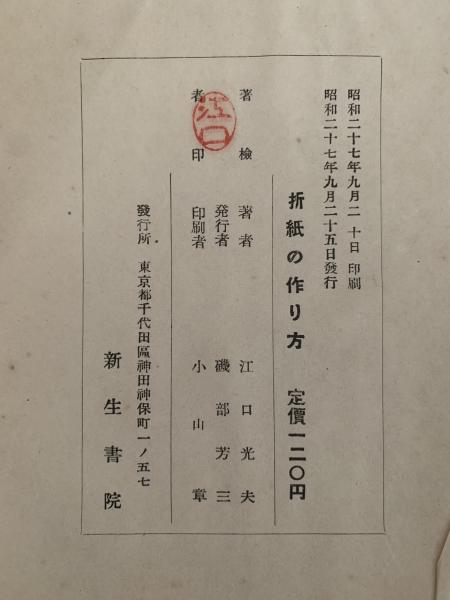 昭和二十七年九月二十日 印刷
昭和二十七年九月二十五日發行
折紙の作り方 定價一二〇円
著檢
者印
江口
著者 江口光夫
発行者 磯部芳三
印刷者 小山章
發行所 東京都千代田區神田神保町一ノ五七
新生書院